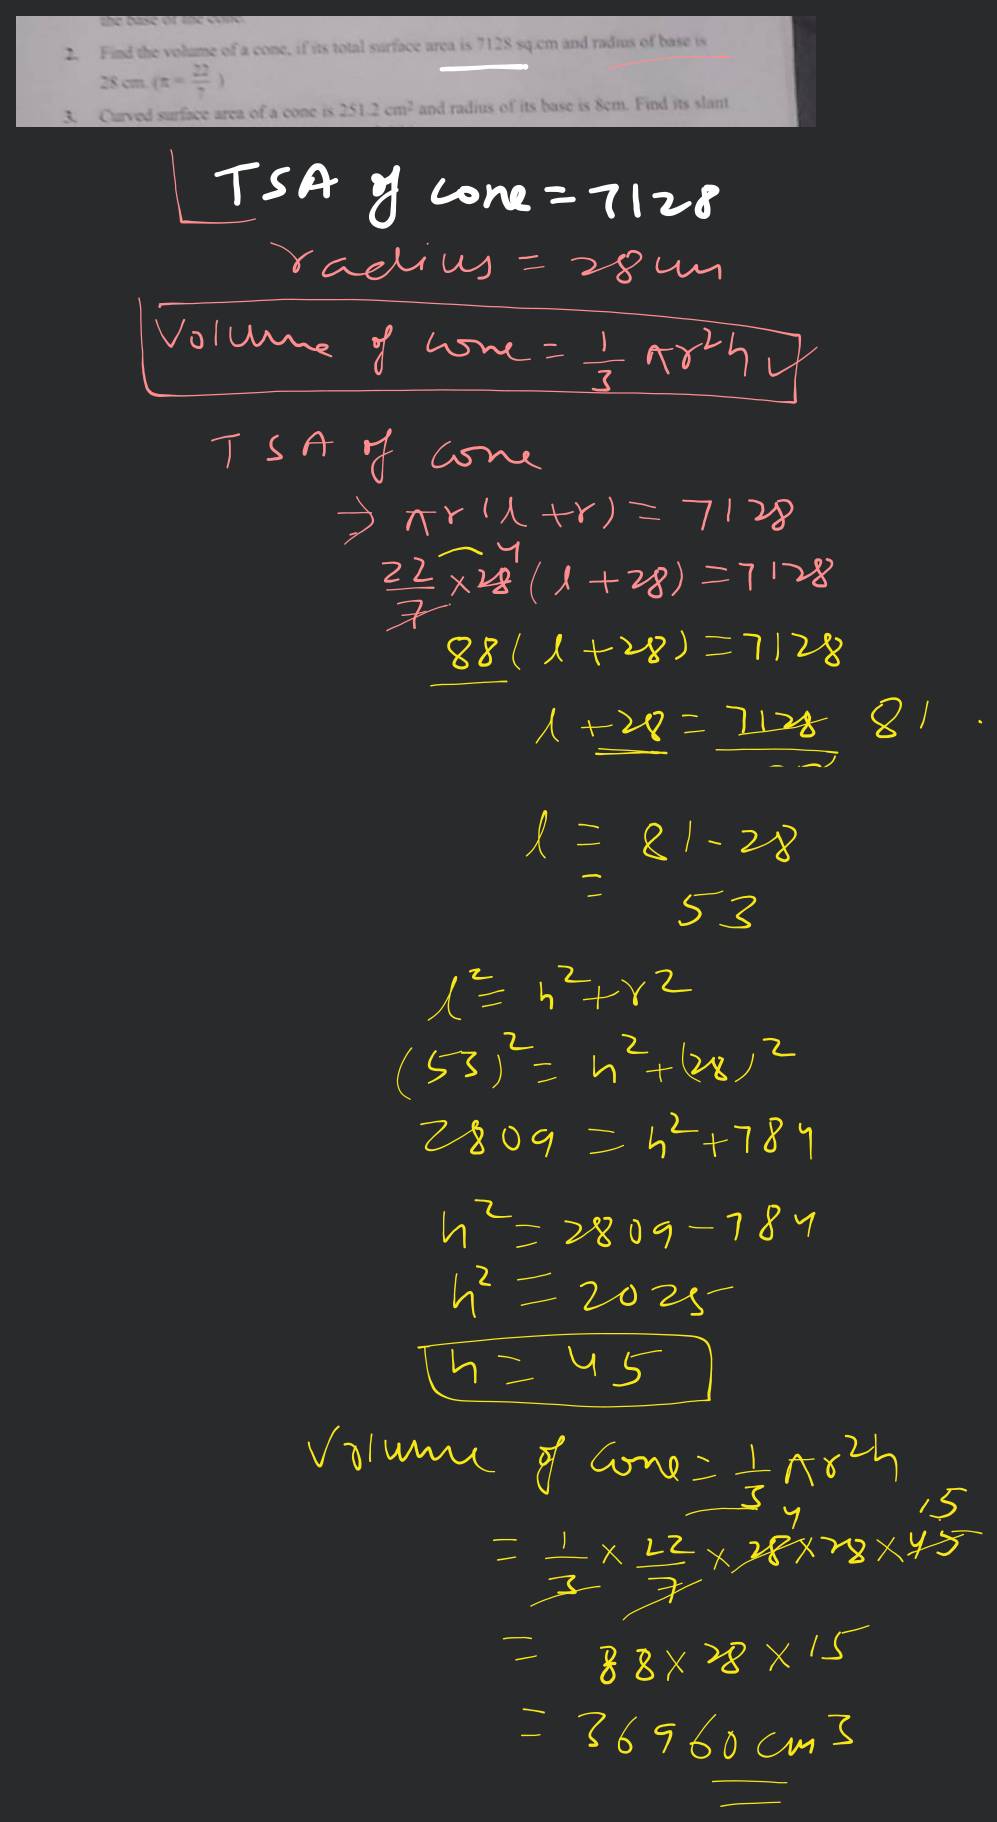 the base of the cone.
2. Find the volume of a cone, if its total surface area is 7128 sq.cm and radius of base is
28 cm. (π = 22/7)
3. Curved surface area of a cone is 251.2 cm² and radius of its base is 8cm. Find its slant
TSA of cone = 7128
radius = 28 cm
Volume of cone = 1/3 πr²h ✓
TSA of cone
⇒ πr(l+r) = 7128
22/7 × 28 4 (l+28) = 7128
88(l+28) = 7128
l+28 = 7128 81
l = 81-28
= 53
l² = h²+r²
(53)² = h²+(28)²
2809 = h²+784
h² = 2809-784
h² = 2025
h = 45
Volume of cone = 1/3 πr²h
= 1/3 × 22/7 × 28 4 × 28 × 45 15
= 88 × 28 × 15
= 36960 cm3